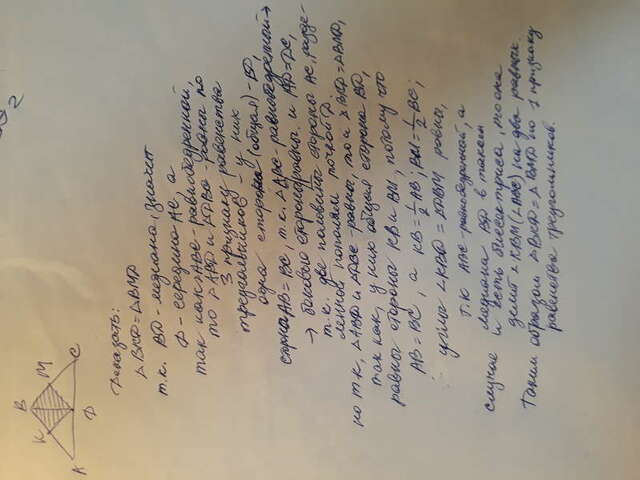 2
B
K
M
A
D
C
Доказать:
△BKD=△BMD
т.к. BD-медиана, значит
D-середина AC, а
так как △ABC-равнобедренный,
то △ABD и △DBC-равны по
3 признаку равенства
треугольников - у них
одна сторона (общая)-BD,
стороны AB=BC, т.к. △ABC-равнобедренный→
→ боковые стороны равны. и AD=DC,
т.к. две половины стороны AC, разде-
лённой пополам точкой D.
но т.к. △ABD и △DBC-равны, то и △BKD=△BMD,
так как, у них общая сторона BD,
равны стороны KB и BM, потому что
AB=BC, а KB=½AB; BM=½BC;
углы ∠KBD=∠DBM равны,
т.к ABC-равнобедренный, а
медиана BD в таком
случае и есть биссектриса, то она
делит ∠KBM(∠ABC) на два равных.
Таким образом △BKD=△BMD по 1 признаку
равенства треугольников.